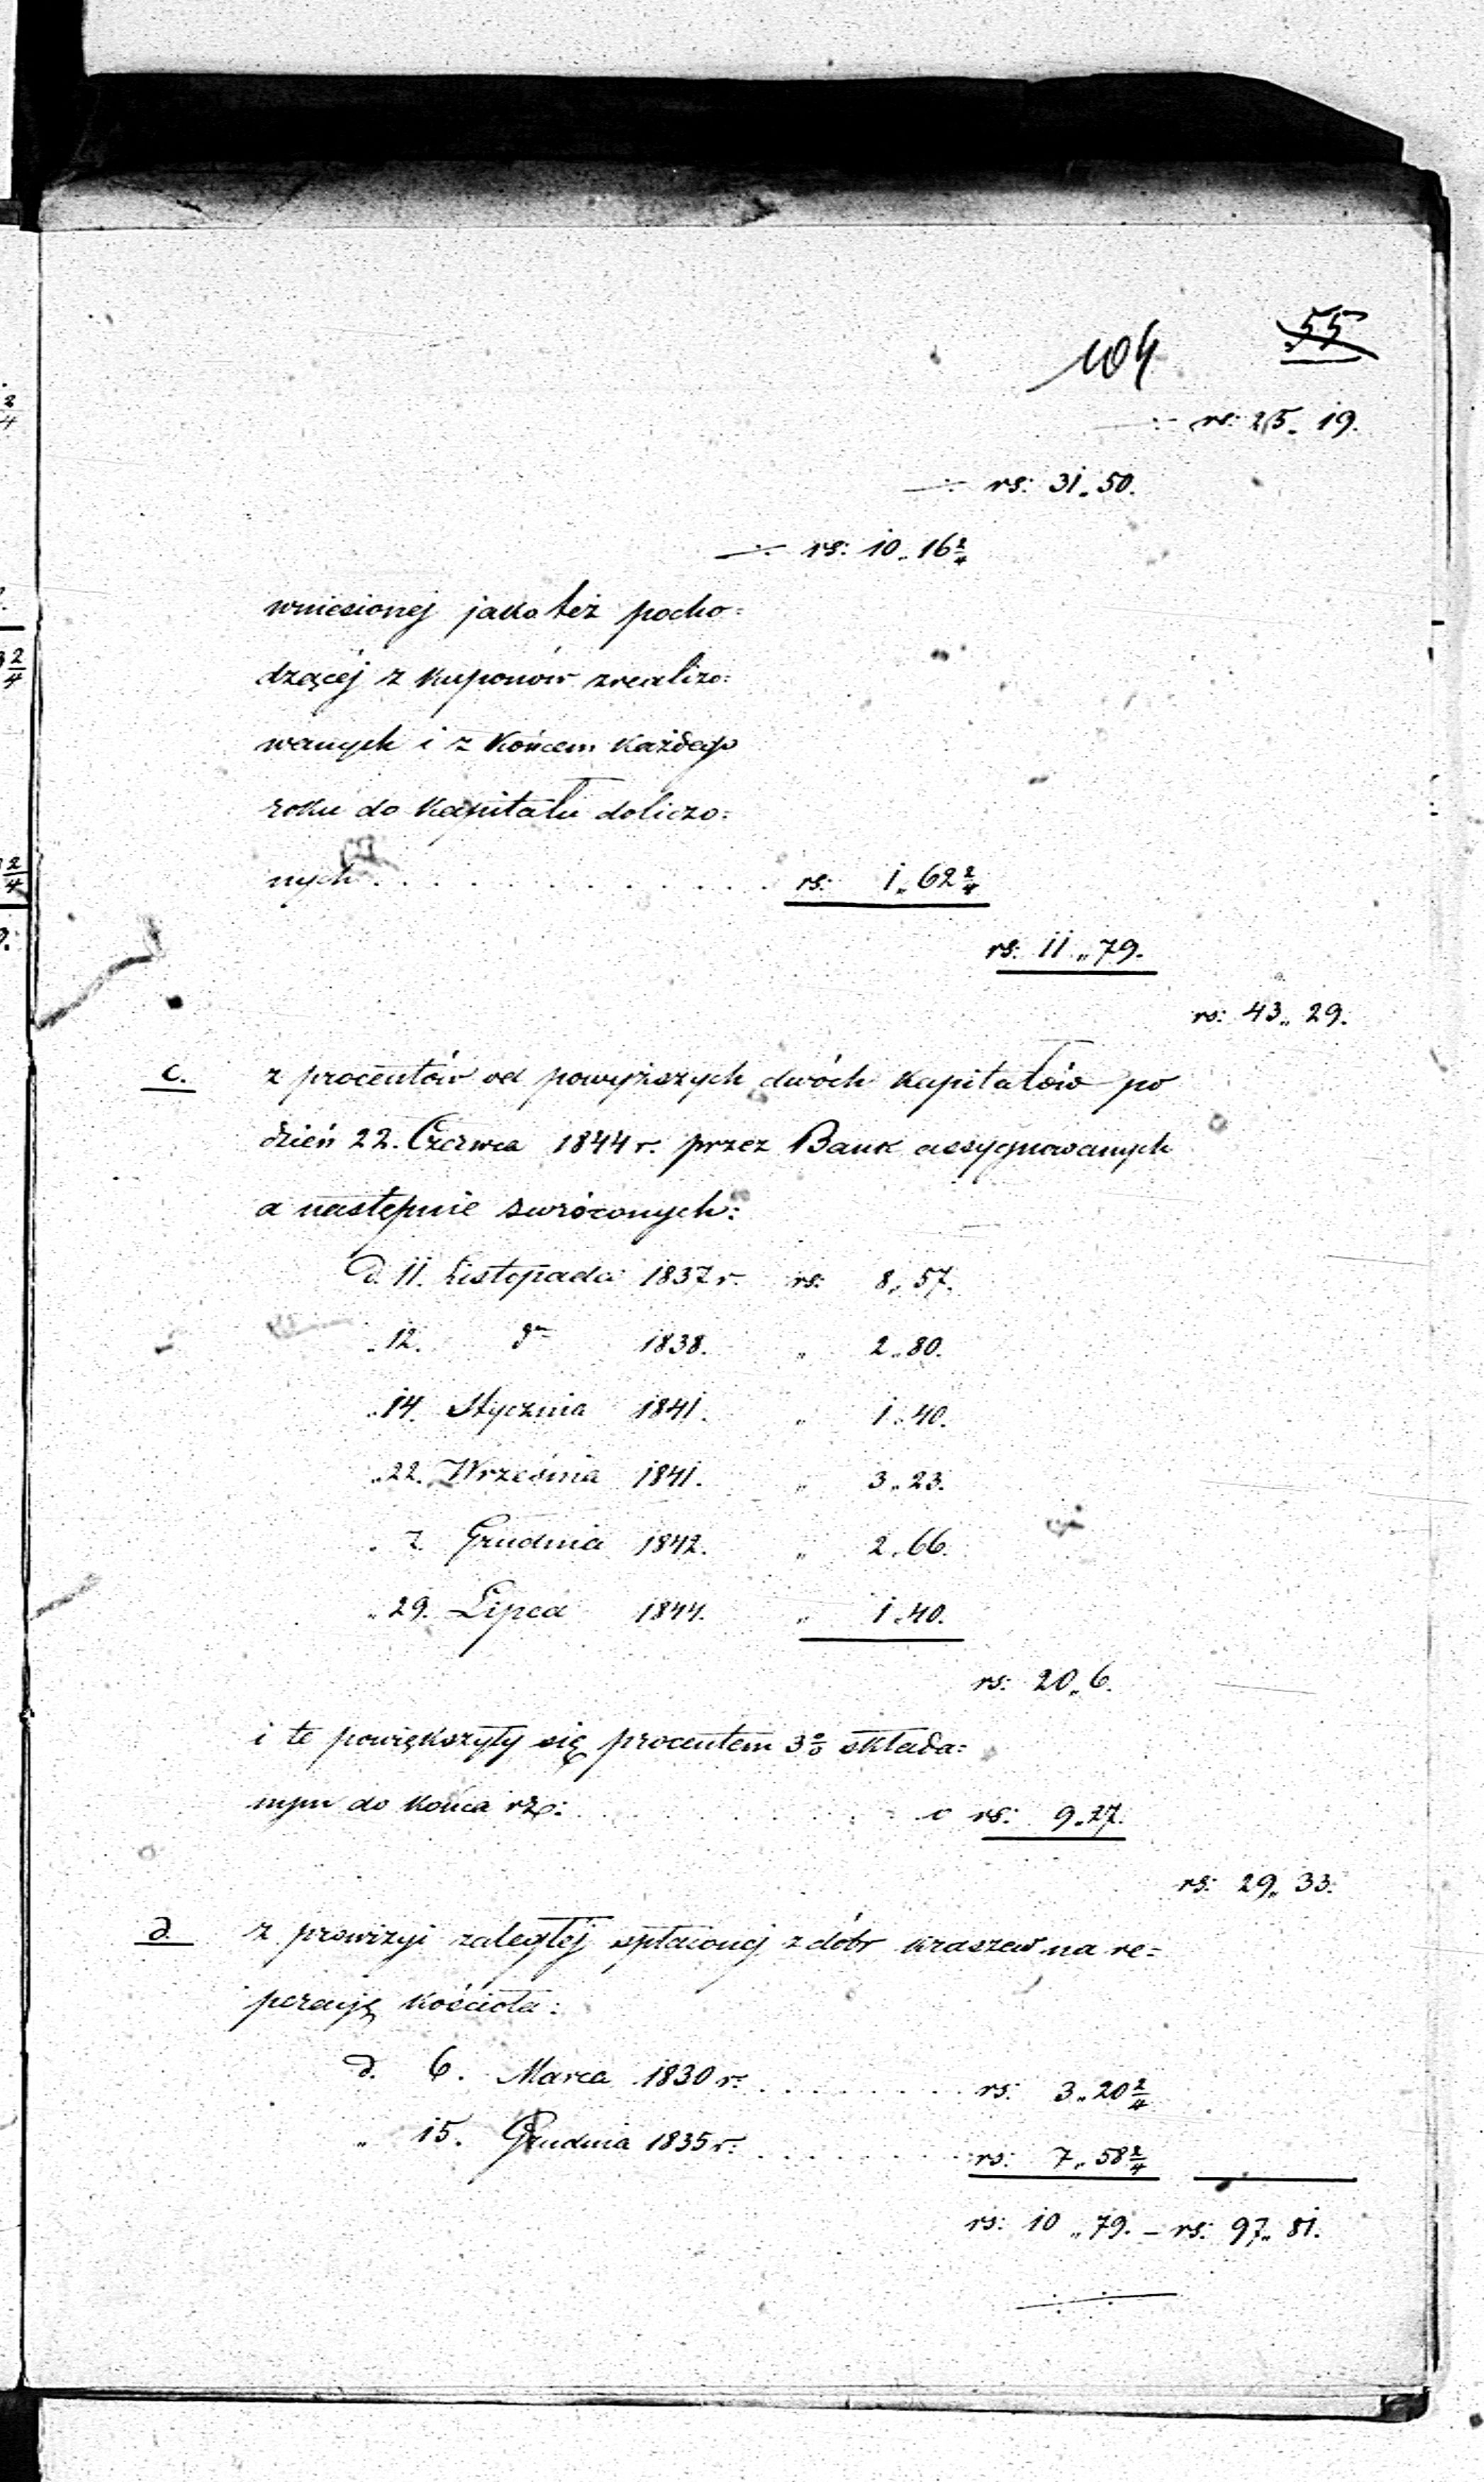 104 55
÷ rs: 25 „ 19.
÷ rs: 31 „ 50.
÷ rs: 10 „ 16 2/4
wniesionej jako też pocho=
dzącéj z kuponów zrealizo=
wanych i z końcem każdego
roku do kapitału doliczo=
nych . . . . . . . . . . . . rs: 1 „ 62 2/4
rs: 11 „ 79.
rs: 43 „ 29.
c. z procentów od powyższych dwóch kapitałów po
dzień 22. Czerwca 1844 r. przez Bank assygnowanych
a następnie zwróconych:
d. 11. Listopada 1837 r. rs: 8 „ 57.
„ 12. do 1838. „ 2 „ 80.
„ 14. Stycznia 1841. „ 1 „ 40.
„ 22. Września 1841. „ 3 „ 23.
„ 7. Grudnia 1842. „ 2 „ 66.
„ 29. Lipca 1844. „ 1 „ 40.
rs: 20 „ 6.
i te powiększyły się procentem 3% składa=
nym do końca rzo: . . . . . . . . o rs: 9 „ 27.
rs: 29 „ 33.
d. z prowizyi zaległéj spłaconej z dóbr Kraszew na re=
peracyę kościoła:
d. 6. Marca 1830 r. . . . . . . . . rs: 3 „ 20 2/4
„ 15. Grudnia 1835 r: . . . . . . . rs: 7 „ 58 2/4
rs: 10 „ 79. – rs: 97 „ 81.